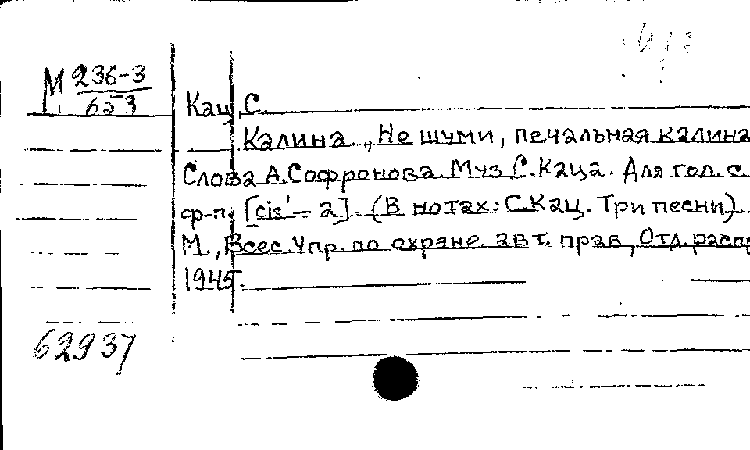 М 236-3
653
Кац, С.
Калина. „Не шуми, печальная калина
Слова А. Софронова. Муз С. Каца. Для гол. с
ф-п. [cis' - a]. (В нотах: С. Кац. Три песни)
М., Всес. Упр. по охране. авт. прав, Отд. распр
1945.
62937